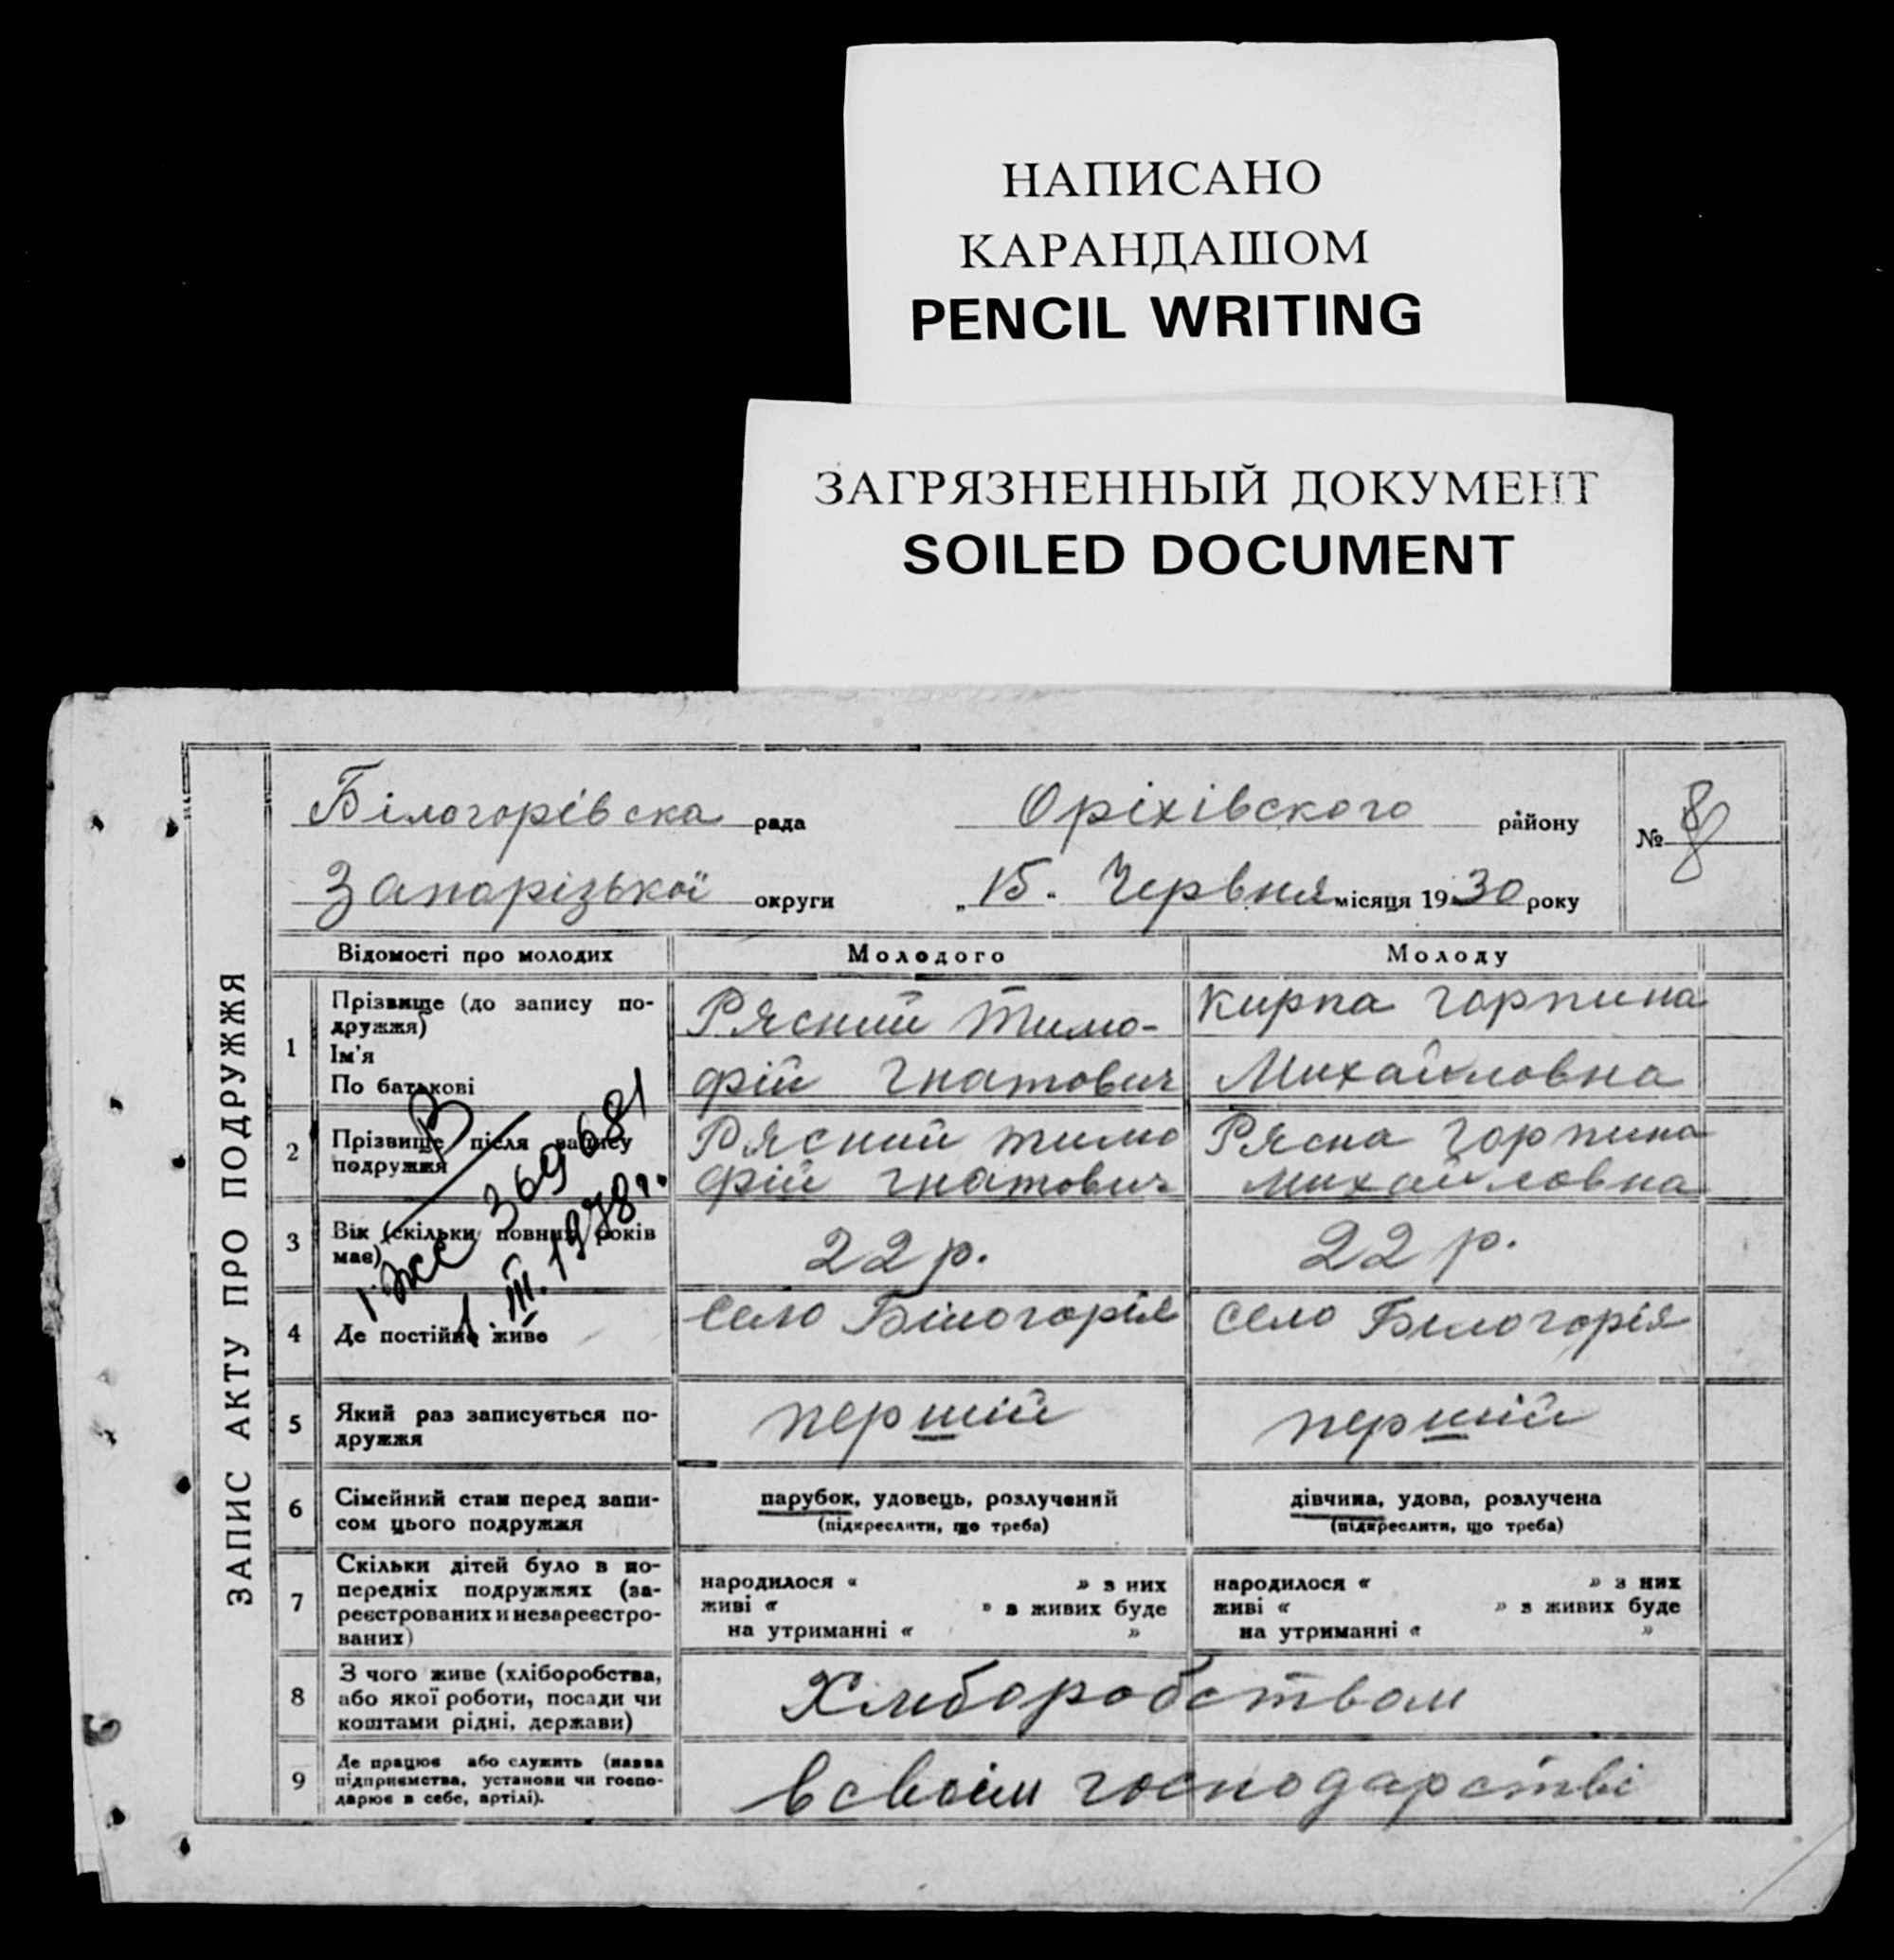 НАПИСАНО
КАРАНДАШОМ
PENCIL WRITING
ЗАГРЯЗНЕННЫЙ ДОКУМЕНТ
SOILED DOCUMENT
ЗАПИС АКТУ ПРО ПОДРУЖЖЯ
Білогорівска рада Оріхівского району № 8
Запорізької округи „15" Червня місяця 1930 року
Відомості про молодих Молодого Молоду
1 Прізвище (до запису по-
дружжя)
Ім'я
По батькові
Рясний Тимо-
фій Гнатович
Кирпа Горпина
Михайловна
2 Прізвище після запису
подружжя
Рясний тимо
фій гнатович
Рясна Горпина
михайловна
3 Вік (скільки повних років
має)
22 р. 22 р.
4 Де постійно живе село Білогорія село Білогорія
I-ЖС 369681
1 III. 1978 г.
5 Який раз записується по-
дружжя
перший перший
6 Сімейний стан перед запи-
сом цього подружжя
парубок, удовець, розлучений
(підкреслити, що треба)
дівчина, удова, розлучена
(підкреслити, що треба)
7 Скільки дітей було в по-
передніх подружжях (за-
реєстрованих и незареєстро-
ваних)
народилося « » з них
живі « » з живих буде
на утриманні « »
народилося « » з них
живі « » з живих буде
на утриманні « »
8 З чого живе (хліборобства,
або якої роботи, посади чи
коштами рідні, держави)
Хліборобством
9 Де працює або служить (назва
підприємства, установи чи госпо-
дарює в себе, артілі).
в своїм господарстві